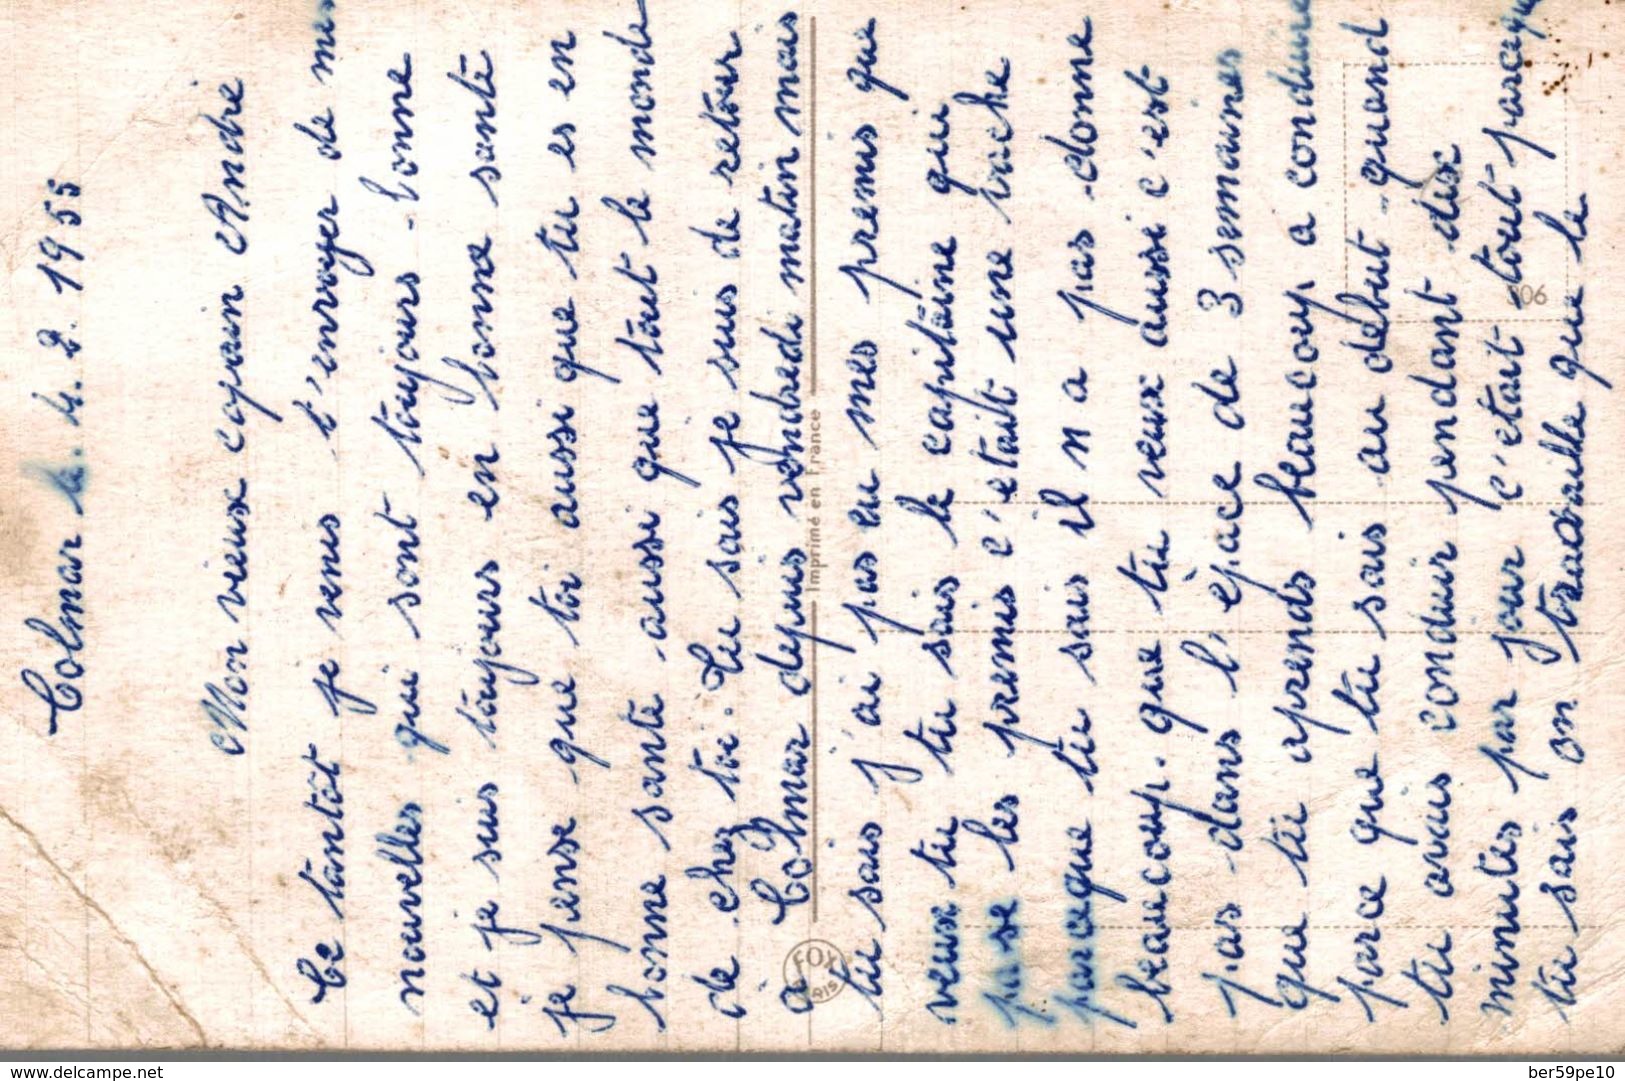 Colmar le. 4. 2. 1955
Mon vieux copain André
Ce tantôt je viens t'envoyer de mes
nouvelles qui sont toujours bonne
et je suis toujours en bonne santé
je pense que toi aussi que tu es en
bonne santé aussi que tout le monde
de chez toi. Tu sais je suis de retour
a Colmar depuis vendredi matin mais
tu sais j'ai pas eu mes premis que
veux tu tu sais le capitaine qui
passe les premis c'etait une vache
parceque tu sais il n a pas donne
beaucoup. que tu veux aussi c'est
pas dans l'èpace de 3 semaines
que tu aprends beaucoup a conduire
parce que tu sais au debut quand
tu avais conduir pendant dix
minutes par jour c'etait tout parceque
tu sais on travaille que le
Imprimé en France
FOX
PARIS
906
www.delcampe.net
ber59pe10